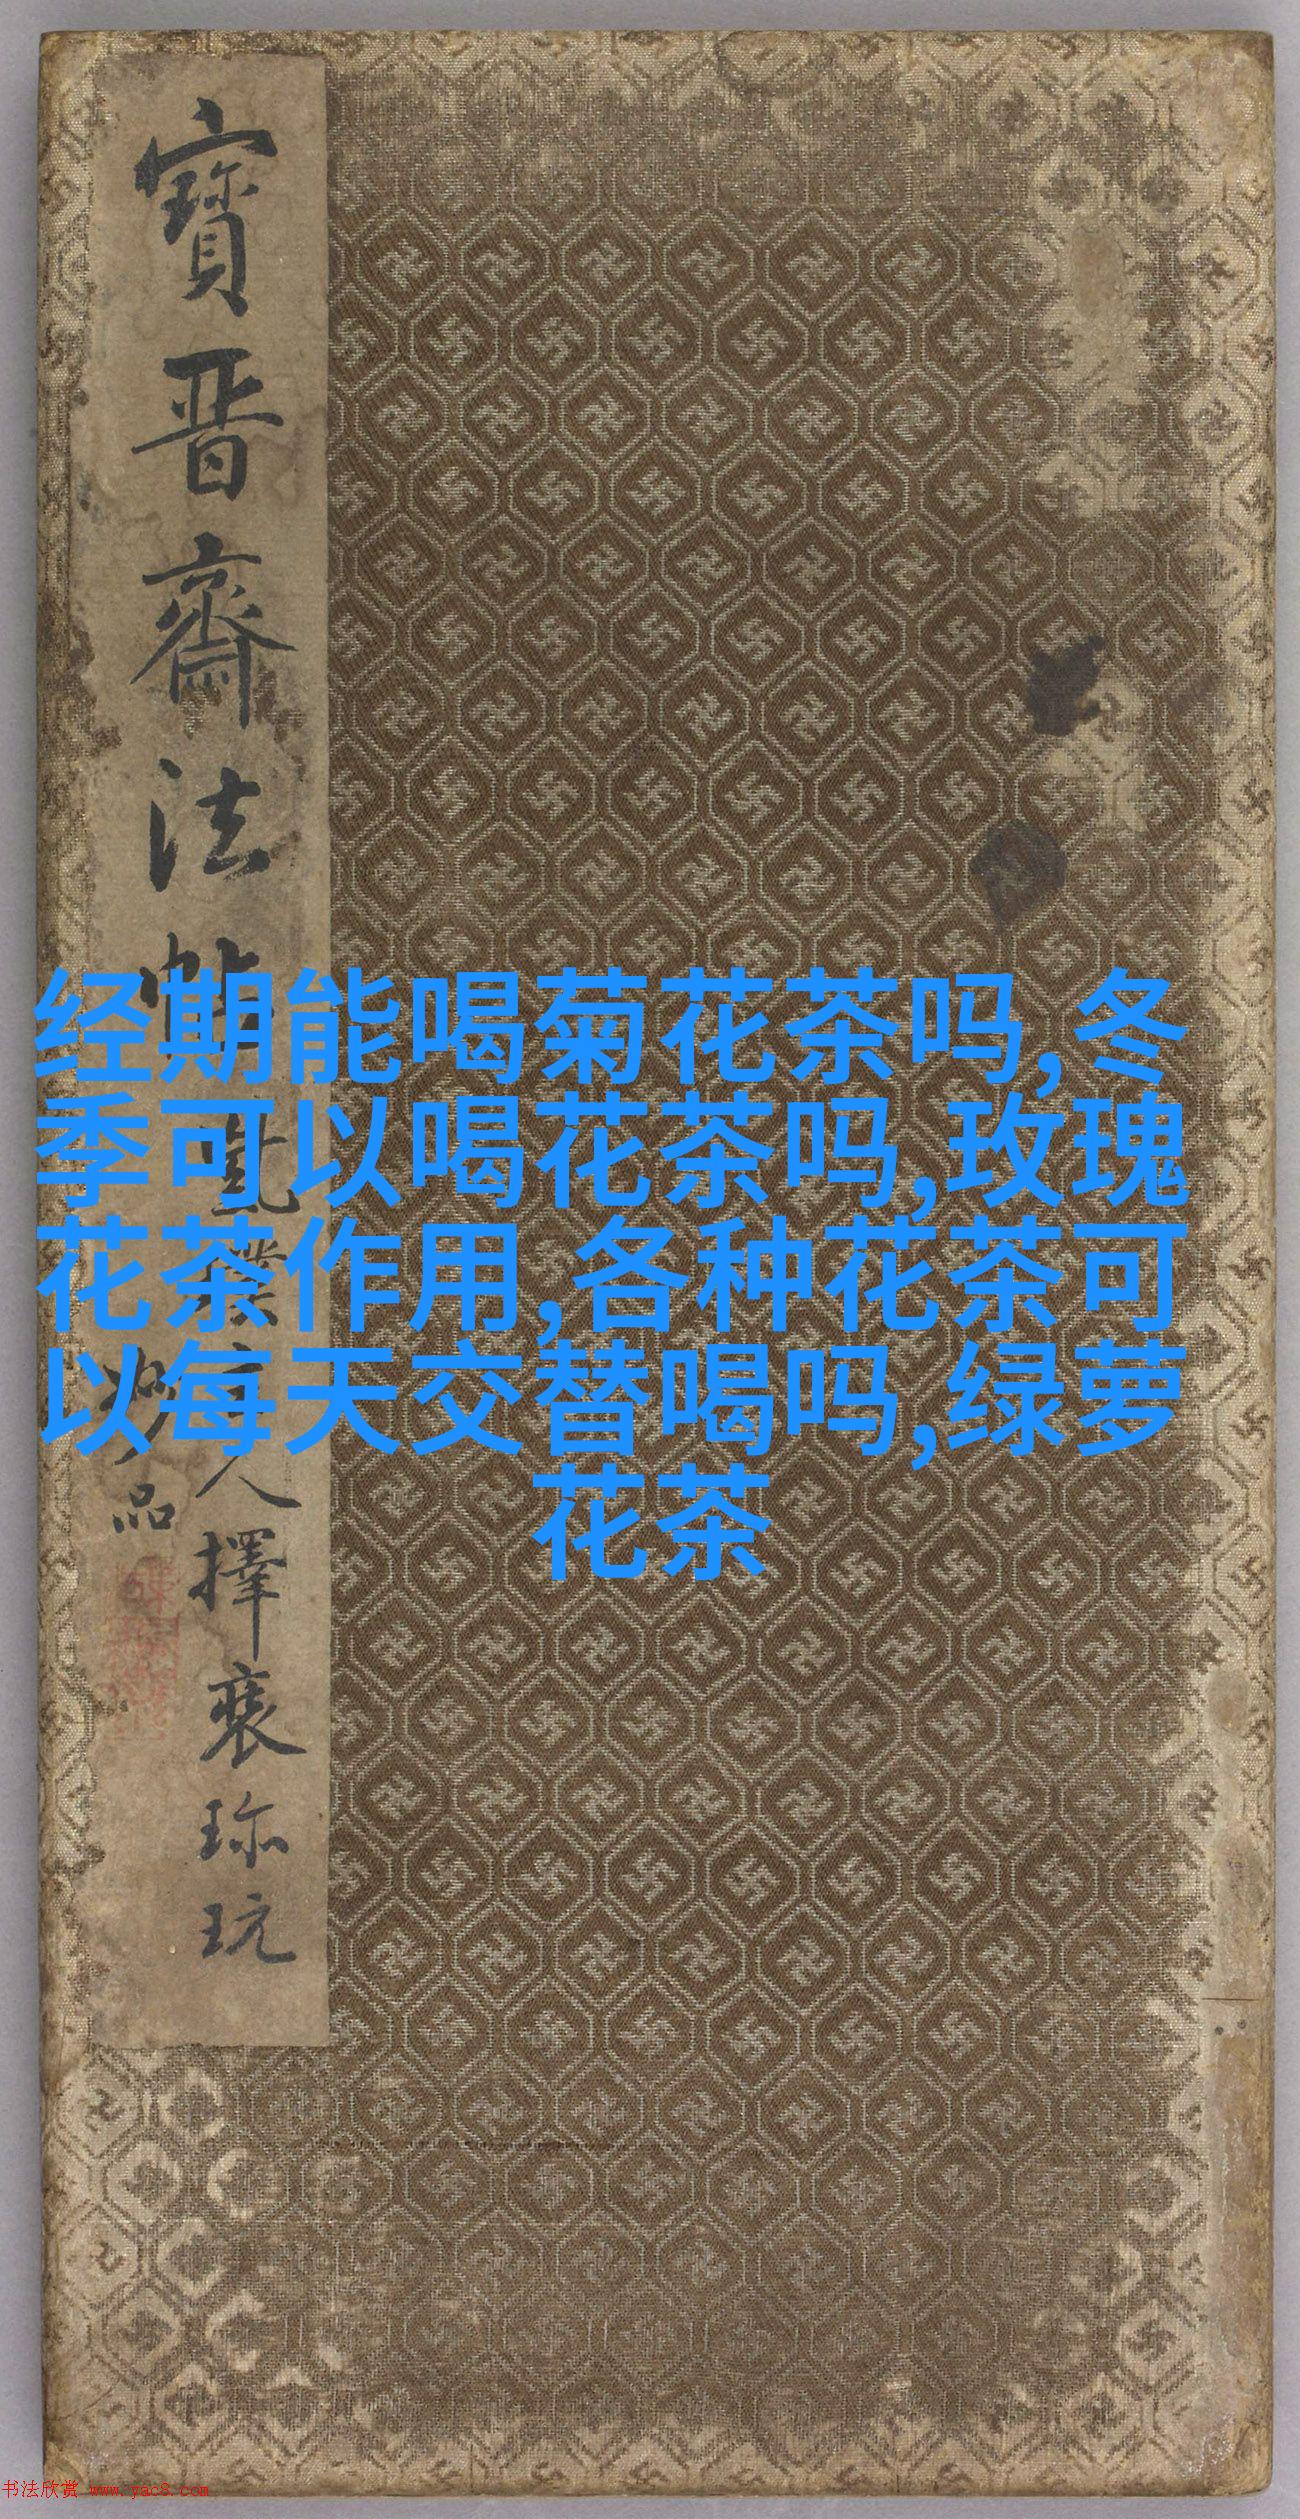 寶晋齋法帖
人擇裘珎玩
妙品
经期能喝菊花茶吗,冬
季可以喝花茶吗,玫瑰
花茶作用,各种花茶可
以每天交替喝吗,绿萝
花茶
书法欣赏 www.yac8.com